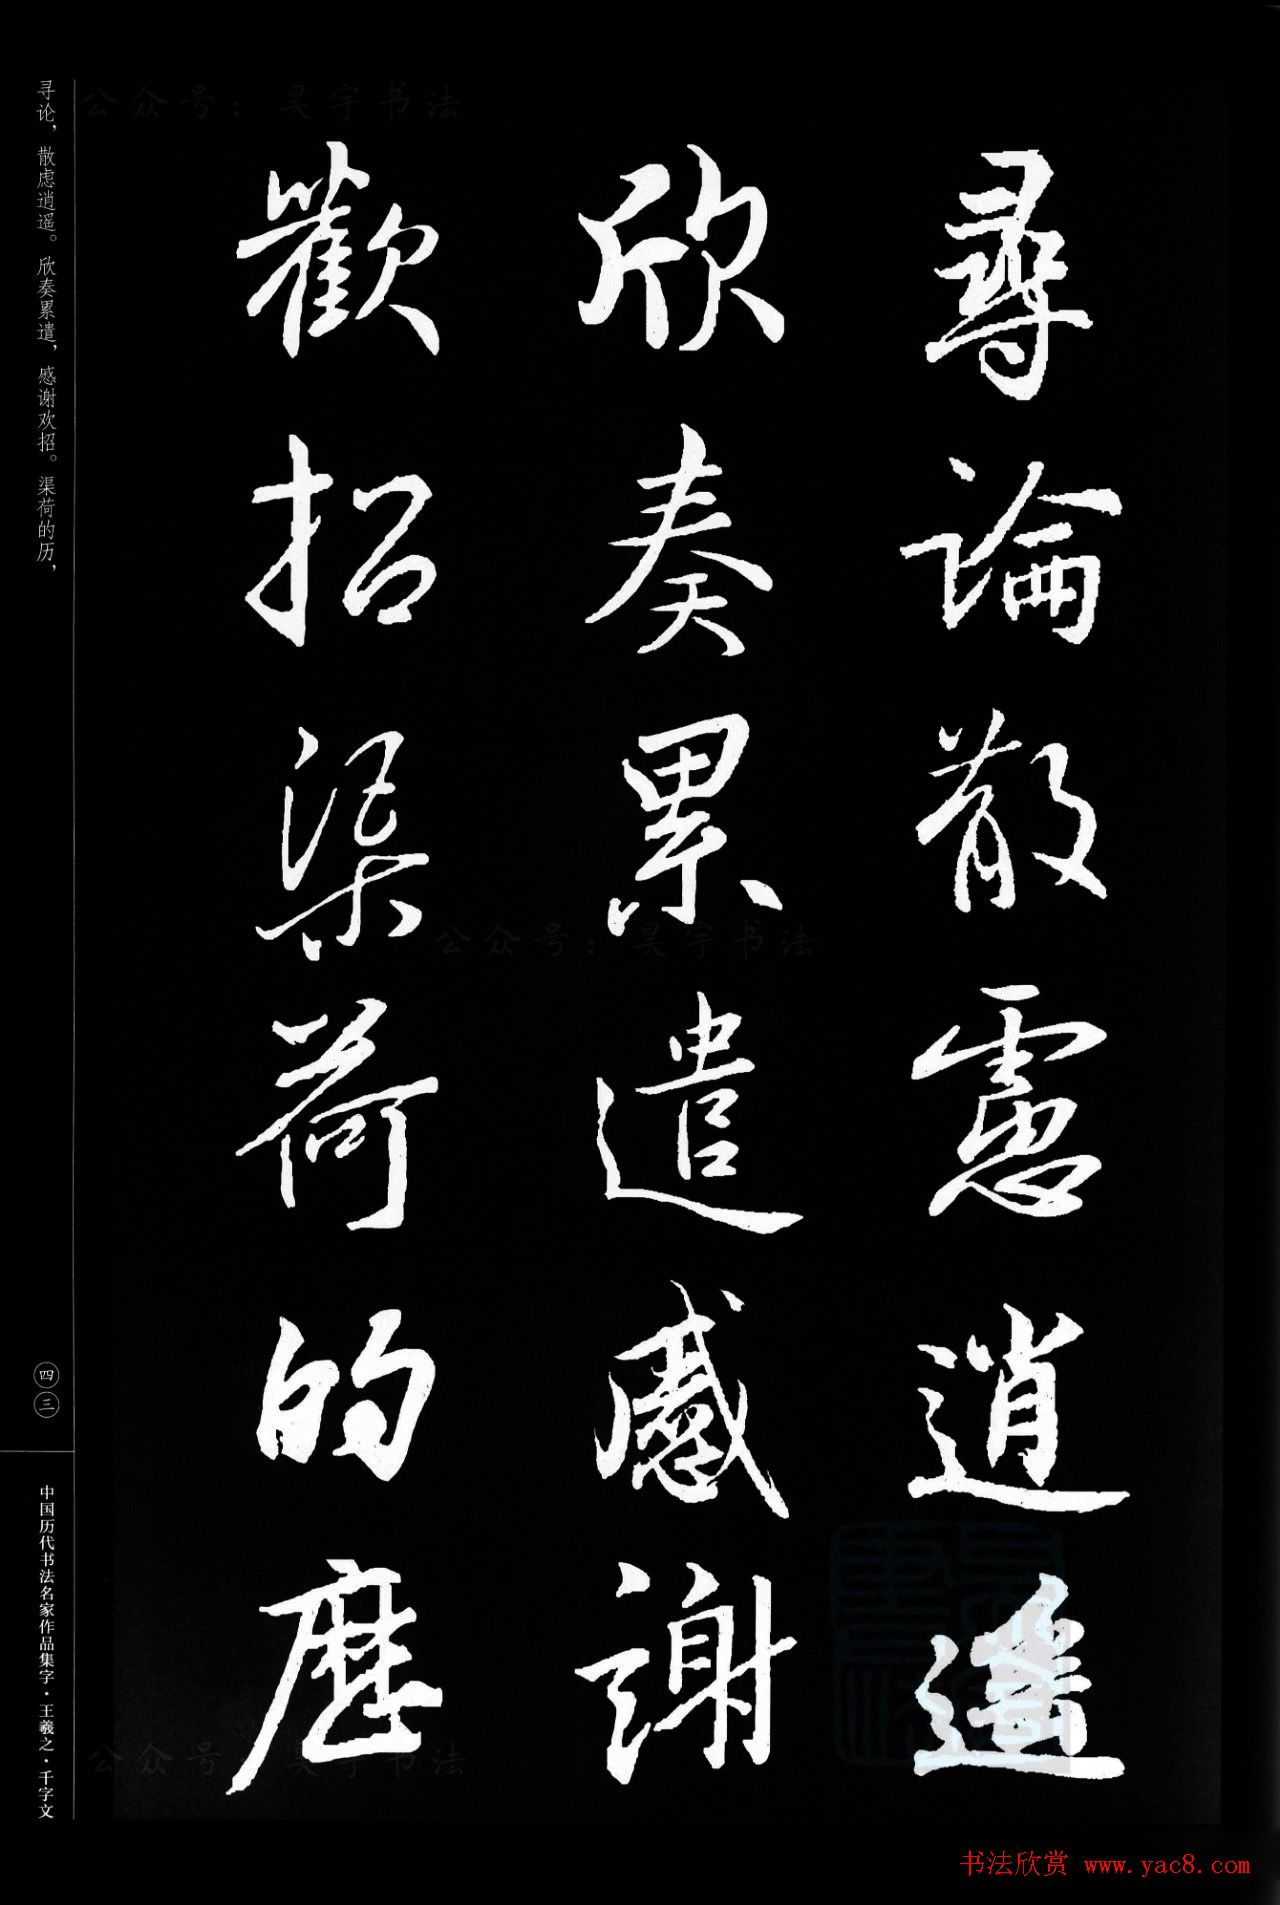 尋論散慮逍遥
欣奏累遣感謝
歡招渠荷的歷
寻论，散虑逍遥。欣奏累遣，感谢欢招。渠荷的历，
四三
中国历代书法名家作品集字·王羲之·千字文
公众号：昊宇书法
公众号：昊宇书法
公众号：昊宇书法
书法欣赏 www.yac8.com